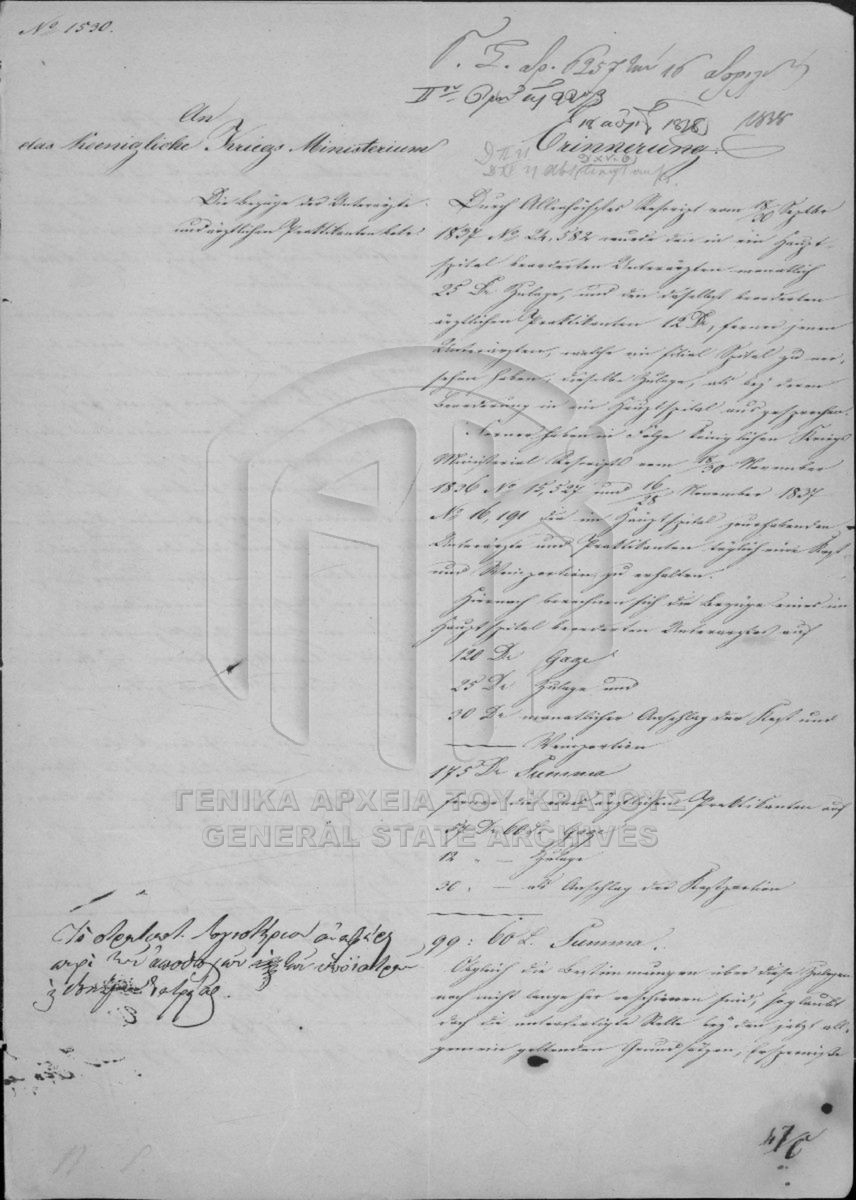 No 1530.
Γ. Σ. αρ. 6257 την 16
1838
An
das Koenigliche Kriegs Ministerium
Erinnerung.
Die Bezüge der Unterärzte
und ärztlichen Praktikanten betr.
Durch Allerhöchstes Rescript vom 18/30 Septbr
1837 No 24,582 wurde den in ein Haupt-
spital beorderten Unterärzten monatlich
25 Dr Zulage, und den daselbst beorderten
ärztlichen Praktikanten 12 Dr, ferner jenen
Unterärzten, welche ein filial Spital zu ver-
sehen haben, dieselbe Zulage, als bey deren
Beorderung in ein Hauptspital ausgesprochen.
Ferner haben in Folge königlichen Kriegs
Ministerial Rescripts vom 18/30 November
1836 No 15,527 und 16/28 November 1837
No 16,191 die im Hauptspital
Unterärzte und Praktikanten täglich eine Kost
und Weinportion zu erhalten.
Hiernach berechnen sich die Bezüge eines im
Hauptspital beorderten Unterarztes auf
120 Dr Gage
25 Dr Zulage und
30 Dr monatlicher Anschlag der Kost und
Weinportion
175 Dr Summa
ferner die eines ärztlichen Praktikanten auf
57 Dr 60 L. Gage
12 " — Zulage
30 " — als Anschlag der Kostportion
99: 60 L. Summa.
Obgleich die Bestimmungen über diese Zulagen
noch nicht lange her erschienen sind, so glaubt
doch die unterfertigte Stelle bey den jetzt all-
gemein geltenden Grundsätzen, Ersparnisse
Το στρατιωτ. Λογιστήριον
περί των αποδοχών των υποϊάτρων
ΓΕΝΙΚΑ ΑΡΧΕΙΑ ΤΟΥ ΚΡΑΤΟΥΣ
GENERAL STATE ARCHIVES